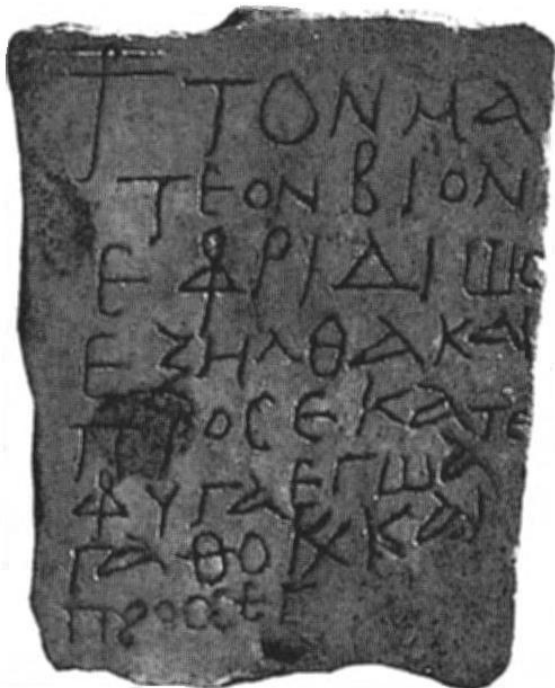 ⳨ ΤΟΝ ΜΑ
ΤΕΟΝ ΒΙΟΝ
ΕΦΡΙΔΙΩC
ΕΞΗΛΘΑ ΚΑΙ
ΠΡΟC Ε ΚΑΤΕ
ΦΥΓΑ ΕΓΩ Α
ΓΑΘΟ ΚΑΙ
ΠΡΟC